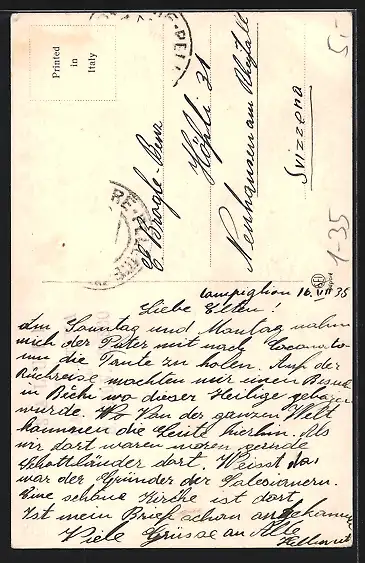 Printed
in
Italy
Höfli 31
Neuhausen am Rheinfall
Svizzena
5.-
1-35
Campiglion 16. VII 35
Liebe Elten!
Am Sonntag und Montag nahm
mich der Pater mit nach Locarno
um die Tante zu holen. Auf der
Rückreise machten wir einen Besuch
in Bechi wo dieser Heilige geboren
wurde. Wo Von der ganzen Welt
kommen die Leute hierhin. Als
wir dort waren waren gerade
Schottländer dort. Weisst das
war der Gründer der Salesianern.
Eine schöne Kirche ist dort.
Ist mein Brief schon angekommen
Viele Grüsse an Alle